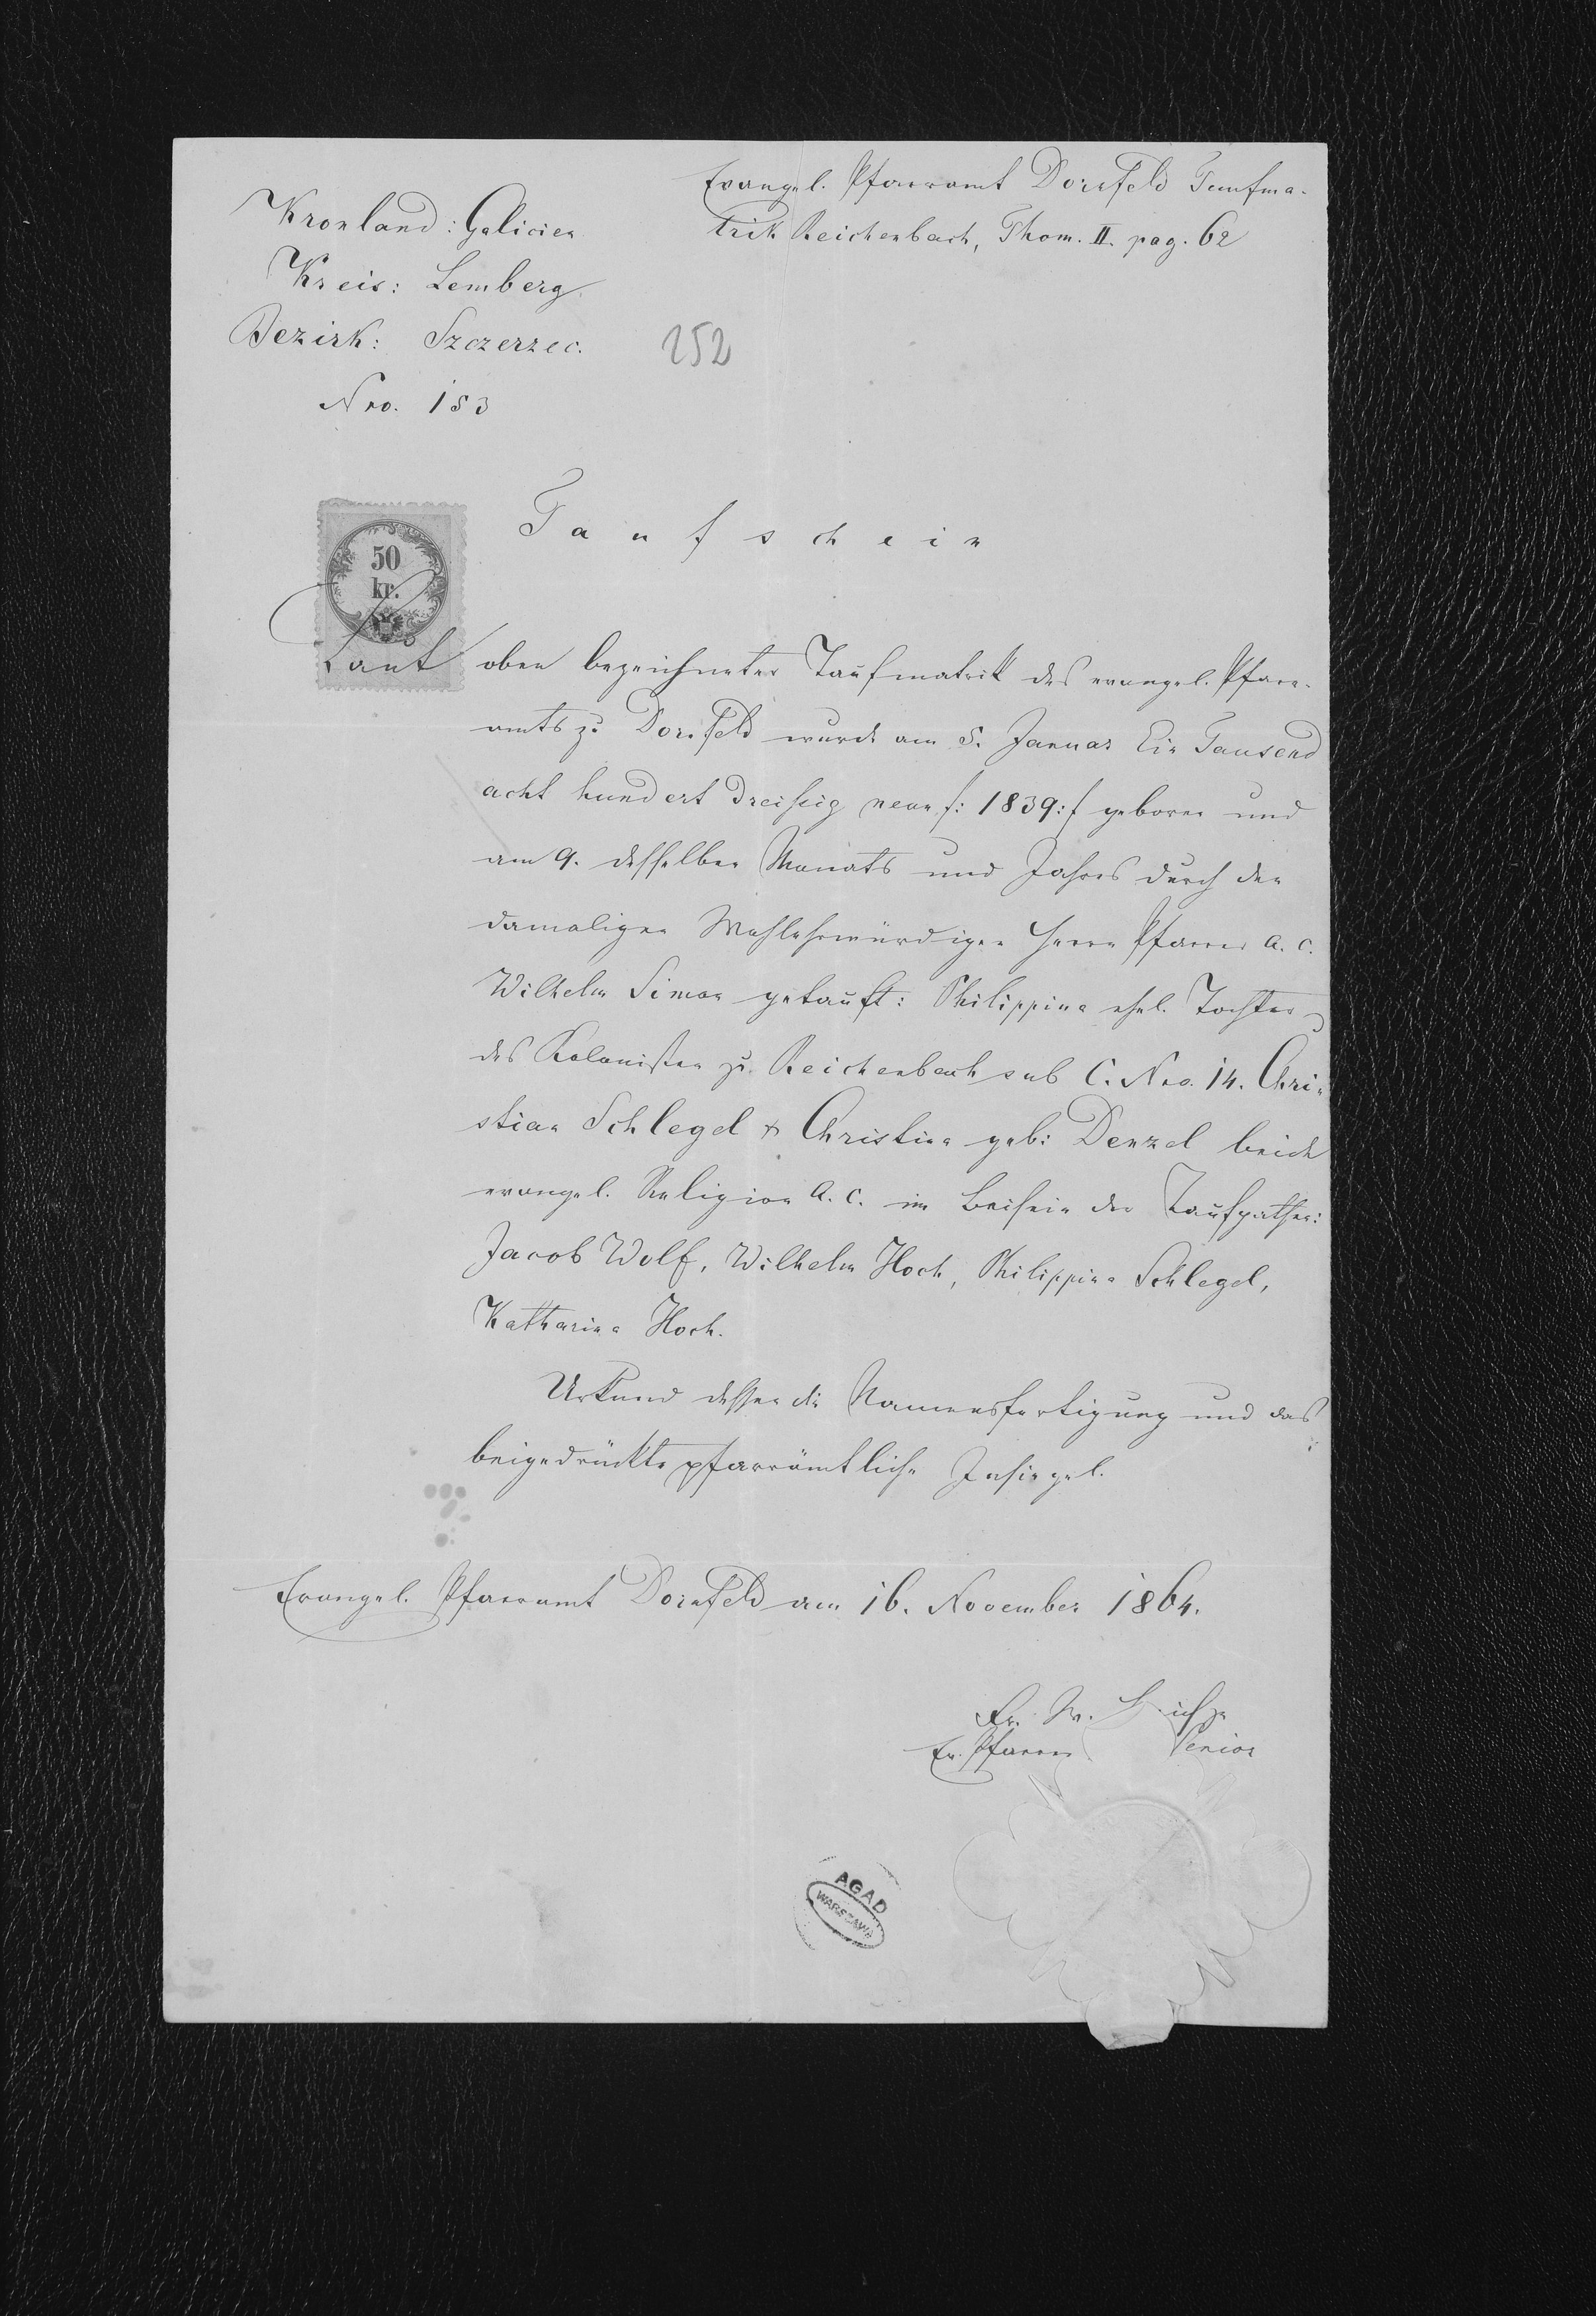 Evangel. Pfarramt Dornfeld Taufma-
trik Reichenbach, Thom. II. pag. 62
Kronland: Galicien
Kreis: Lemberg
Bezirk: Szczerzec.
252
Nro. 153
Taufschein
50
kr.
Laut oben bezeichneter Taufmatrik des evangel. Pfarr-
amts zu Dornfeld wurde am 5. Januar Ein Tausend
acht hundert dreißig neun /: 1839 :/ geboren und
am 9. desselben Monats und Jahres durch den
damaligen Wohlehrwürdigen Herrn Pfarrer A. C.
Wilhelm Simon getauft: Philippina ehel. Tochter
des Kolonisten zu Reichenbach sub C. Nro. 14. Chri-
stian Schlegel & Christina geb: Denzel beide
evangel. Religion A. C. im Beisein der Taufpathen:
Jacob Wolf, Wilhelm Hoch, Philippina Schlegel,
Katharina Hoch.
Urkund dessen die Namensfertigung und das
beigedrückte pfarrämtliche Insiegel.
Evangel. Pfarramt Dornfeld am 16. November 1864.
Fr. W.
Ev. Pfarrer Senior
AGAD
WARSZAWA